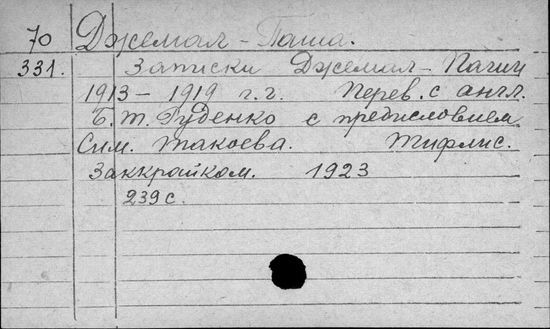 70 Джемал-Паша.
331. Записки Джемал-Паши
1913-1919 г.г. Перев. с англ.
Б. Т. Руденко с предисловием
Сим. Такоева. Тифлис.
Заккрайком. 1923
239 с.